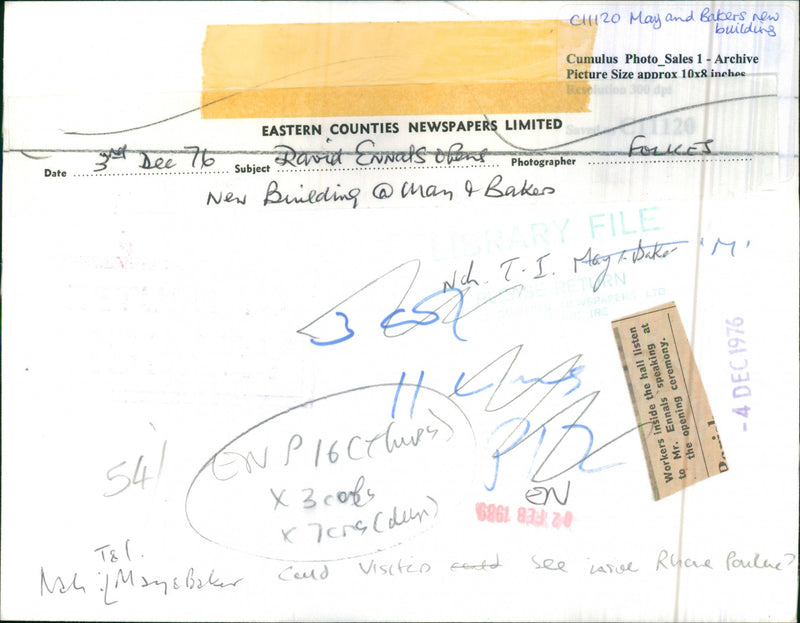 C11120 May and Bakers new
building
Cumulus Photo_Sales 1 - Archive
Picture Size approx 10x8 inches
Resolution 300 dpi
C11120
EASTERN COUNTIES NEWSPAPERS LIMITED
Date 3rd Dec 76 Subject David Ennals opens Photographer FOLKES
New Building @ May & Bakers
LIBRARY FILE
Nch. T. I. May & Baker 'M'
PLEASE RETURN
NEWSPAPERS LTD
3 COL
11
P12
EN
Workers inside the hall listen
to Mr. Ennals speaking at
the opening ceremony.
- 4 DEC 1976
54
EN P 16 (thurs)
x 3 cols
x 7 cms (deep)
02 FEB 1989
T&I.
Nch : May & Baker Could Visitors could see inside Rhone Poulenc?